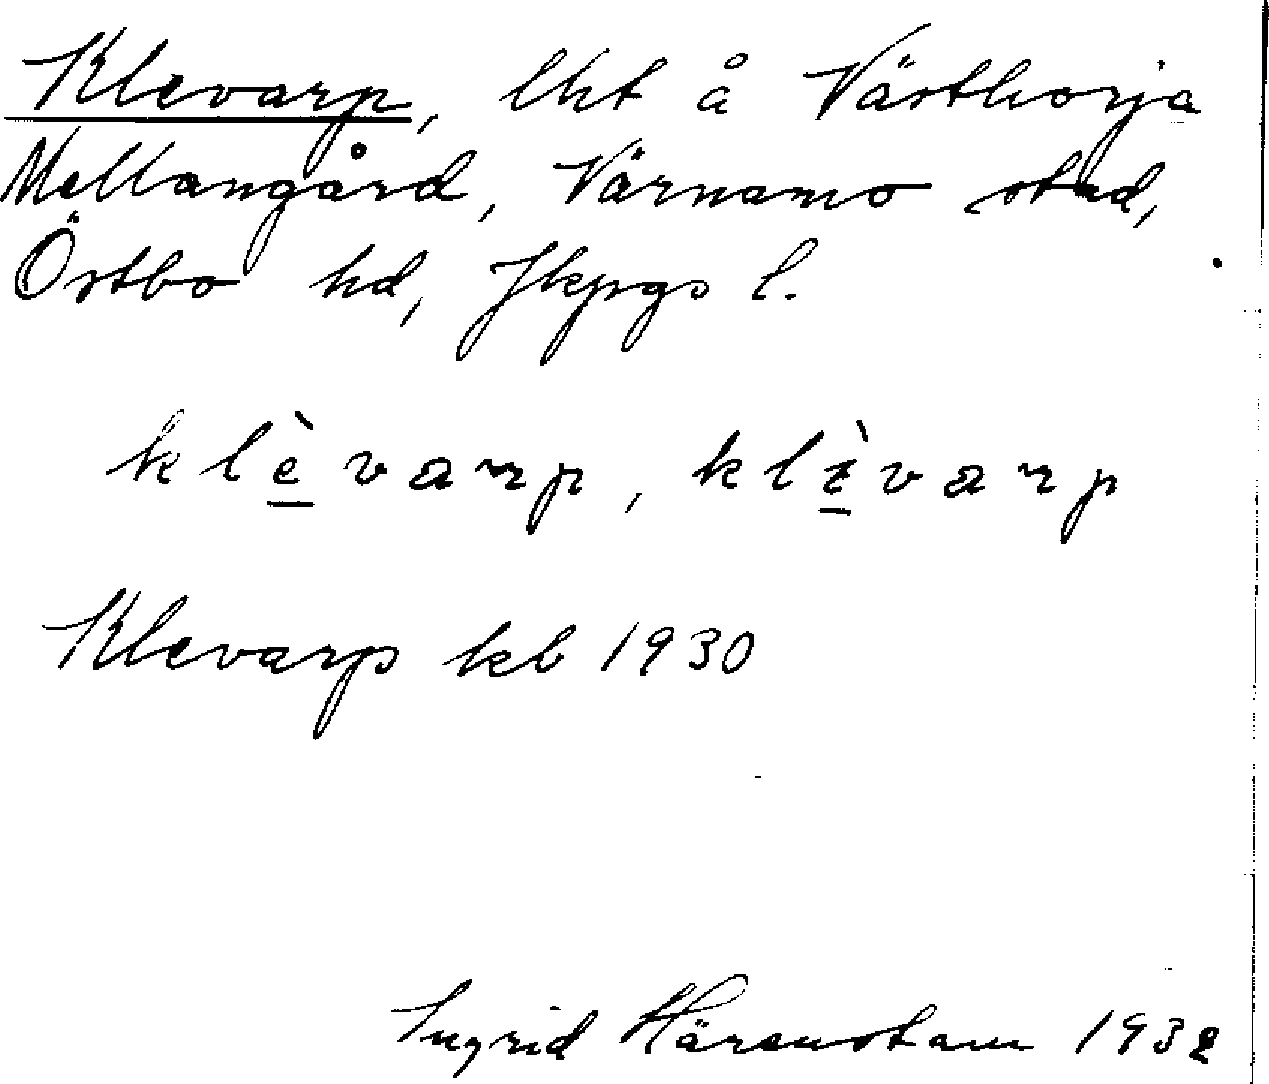 Klevarp, lht å Västhorja
Mellangård, Värnamo stad,
Östbo hd, Jkpgs l.
klèvarp, klìvarp
Klevarp kb 1930
Ingrid Härenstam 1932